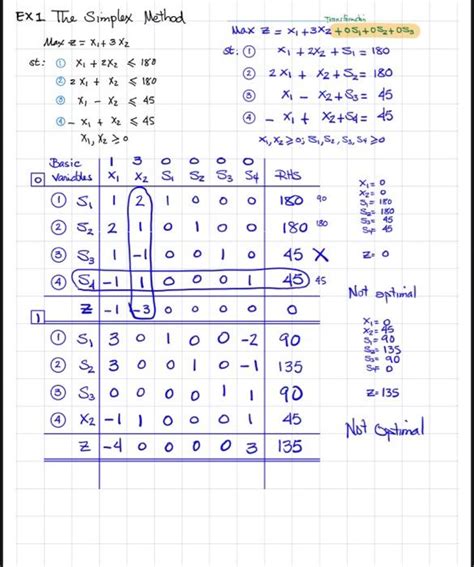 EX1 The Simplex Method
Max Z = X1+3X2
st: ① X1 + 2X2 ≤ 180
② 2X1 + X2 ≤ 180
③ X1 - X2 ≤ 45
④ - X1 + X2 ≤ 45
X1, X2 ≥ 0
Transformation
Max Z = X1+3X2 +0S1+0S2+0S3
st: ① X1 + 2X2 + S1 = 180
② 2X1 + X2 + S2 = 180
③ X1 - X2 + S3 = 45
④ - X1 + X2 + S4 = 45
X1, X2 ≥ 0; S1, S2, S3, S4 ≥ 0
Basic 1 3 0 0 0 0
0 Variables X1 X2 S1 S2 S3 S4 RHS
① S1 1 2 1 0 0 0 180 90
② S2 2 1 0 1 0 0 180 180
③ S3 1 -1 0 0 1 0 45 X
④ S4 -1 1 0 0 0 1 45 45
Z -1 -3 0 0 0 0 0
X1= 0
X2= 0
S1= 180
S2= 180
S3= 45
S4= 45
Z= 0
Not optimal
1
① S1 3 0 1 0 0 -2 90
② S2 3 0 0 1 0 -1 135
③ S3 0 0 0 0 1 1 90
④ X2 -1 1 0 0 0 1 45
Z -4 0 0 0 0 3 135
X1= 0
X2= 45
S1= 90
S2= 135
S3= 90
S4= 0
Z= 135
Not Optimal